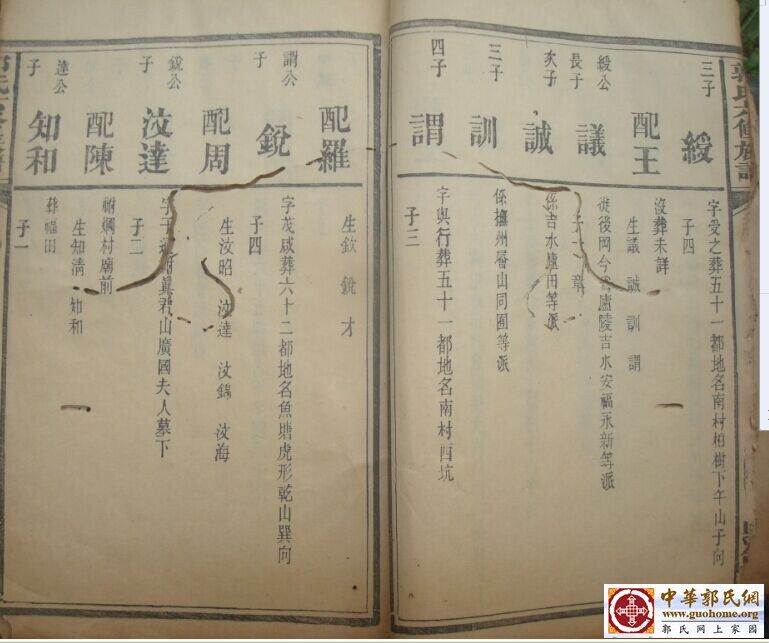 三子
綬
字愛之葬五十一都地名南村柏樹下午山子向
子四
配王
沒葬未詳
生議 誠 訓 謂
綬公
長子
議
徙後岡今
廬陵吉水安福永新等派
子一 章
次子
誠
係吉水廬田等派
三子
訓
係撫州層山同囿等派
四子
謂
字與行葬五十一都地名南村西坑
子三
配羅
生欽 銳 才
謂公
子
銳
字茂咸葬六十二都地名魚塘虎形乾山巽向
子四
配周
生汶昭 汶達 汶錦 汶海
銳公
子
汶達
真君山廣國夫人墓下
子二
配陳
祔烱村廟前
生知淸 知和
達公
子
知和
葬福田
子一
中華郭氏網
www.guohome.org
郭氏網上家園